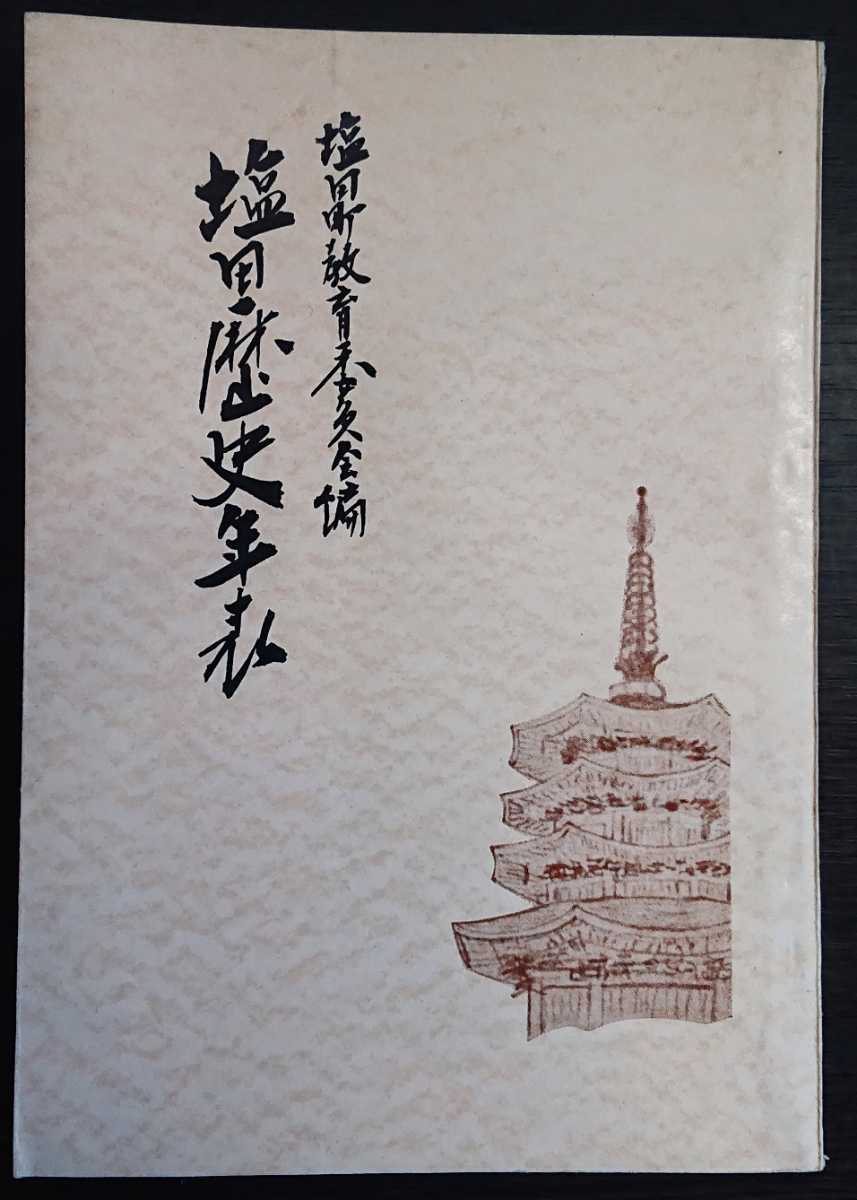 塩田町教育委員会編
塩田歴史年表